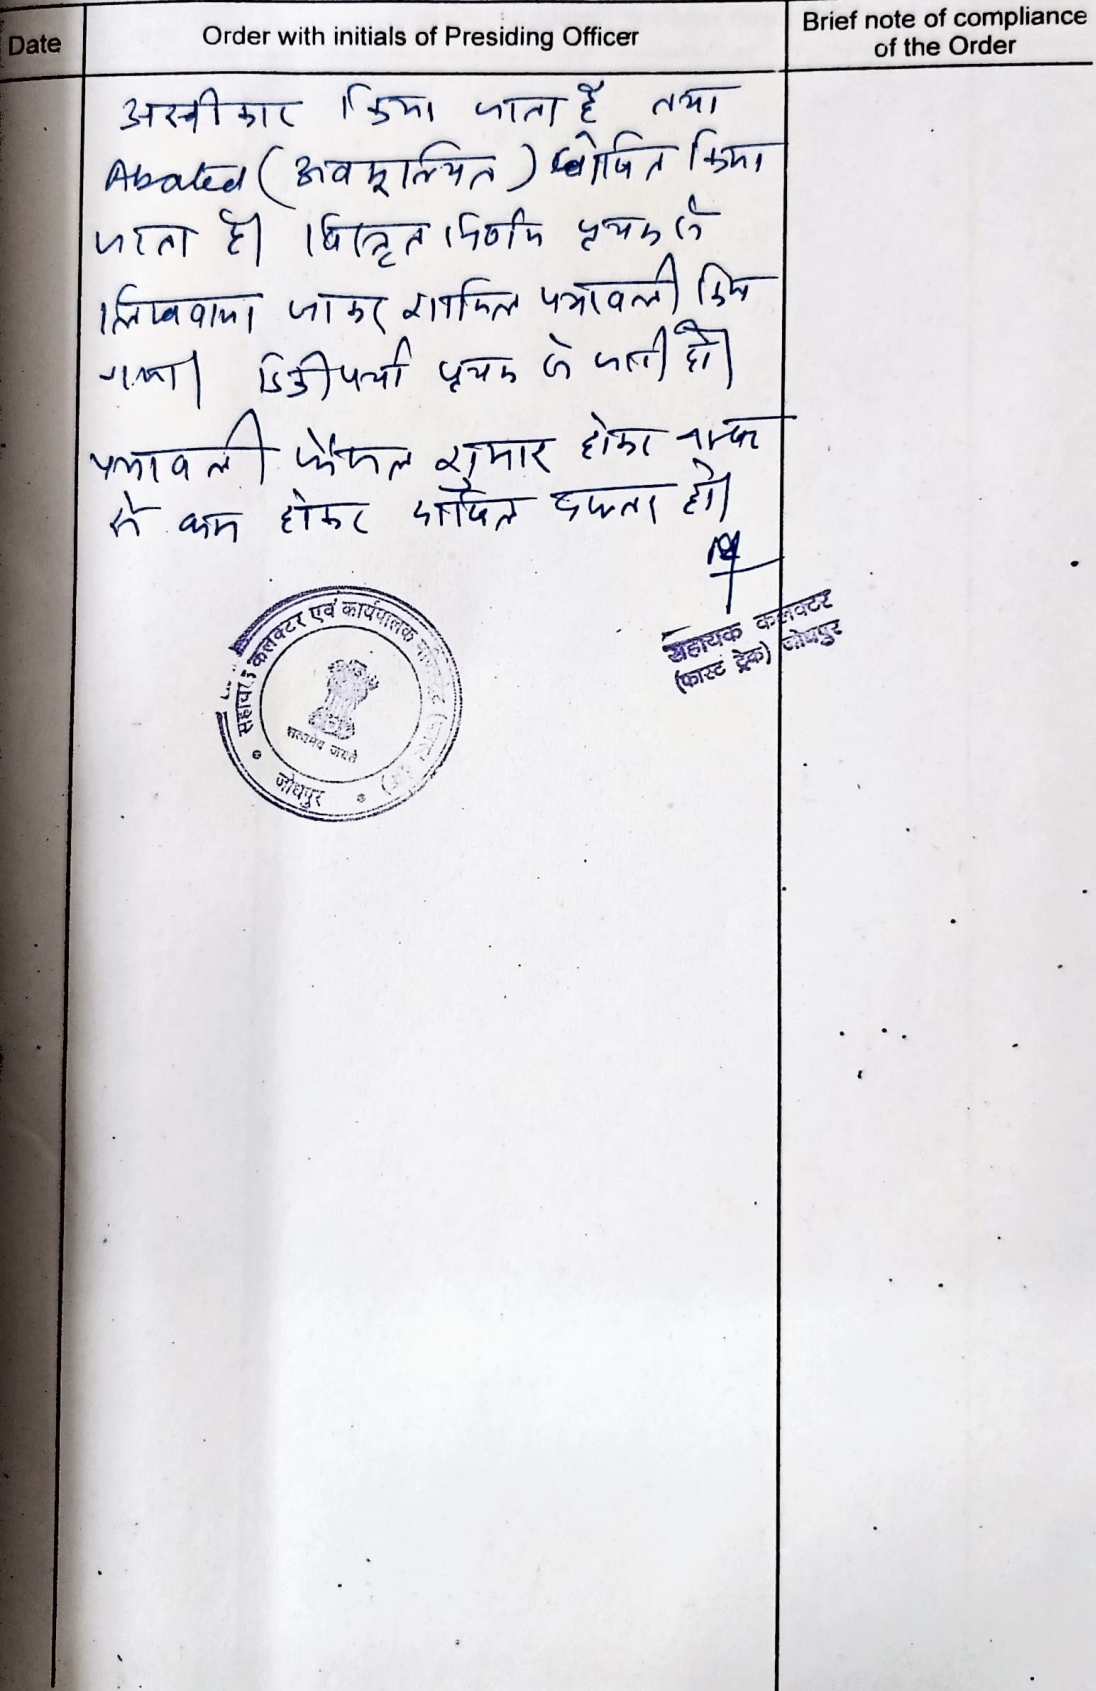 Date
Order with initials of Presiding Officer
Brief note of compliance
of the Order
अस्वीकार किया जाता है तथा
Abated (अवमूल्यित) घोषित किया
जाता है। विस्तृत निर्णय पृथक से
लिखवाया जाकर शामिल पत्रावली किया
गया। डिक्री पर्चा पृथक से जारी हो।
पत्रावली फैसल शुमार होकर नम्बर
से कम होकर दाखिल दफ्तर हो।
सहायक कलक्टर
(फास्ट ट्रेक) जोधपुर
सहायक कलक्टर एवं कार्यपालक
सत्यमेव जयते
जोधपुर